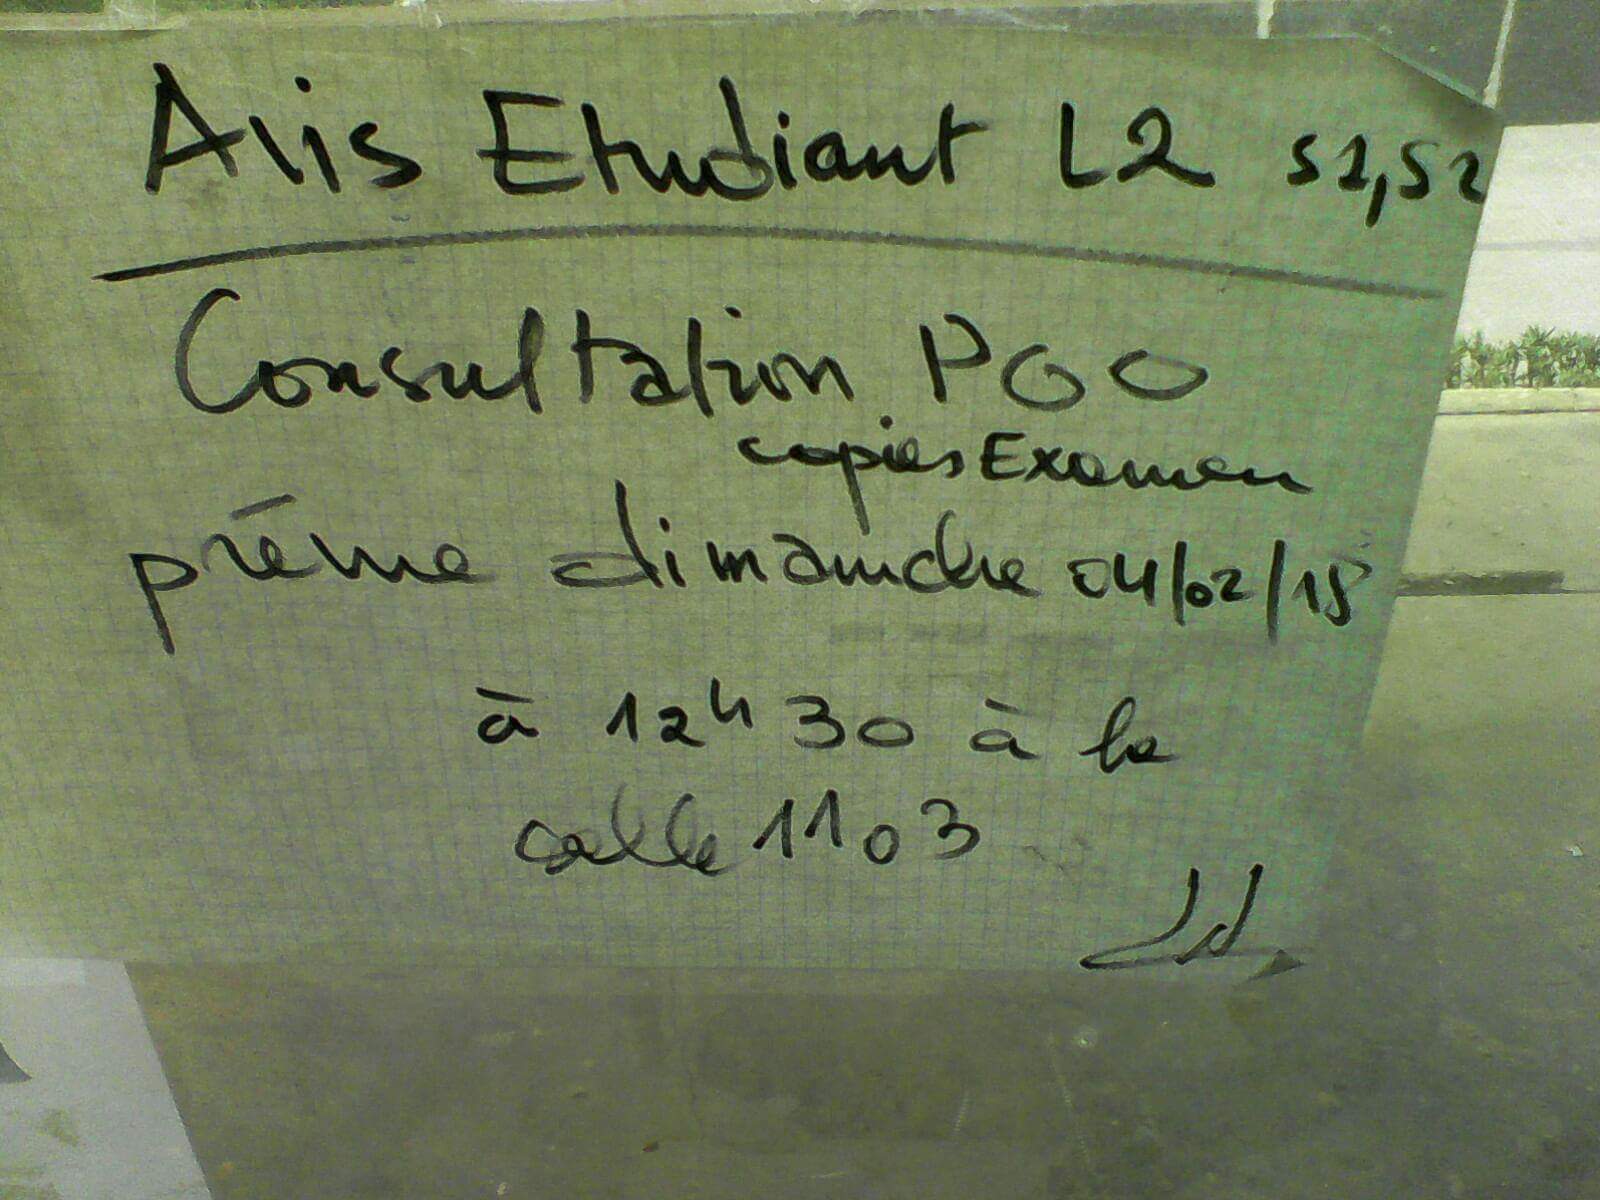 Avis Etudiant L2 S1, S2
Consultation POO
copies Examen
prévue dimanche 04/02/18
à 12h30 à la
salle 1103